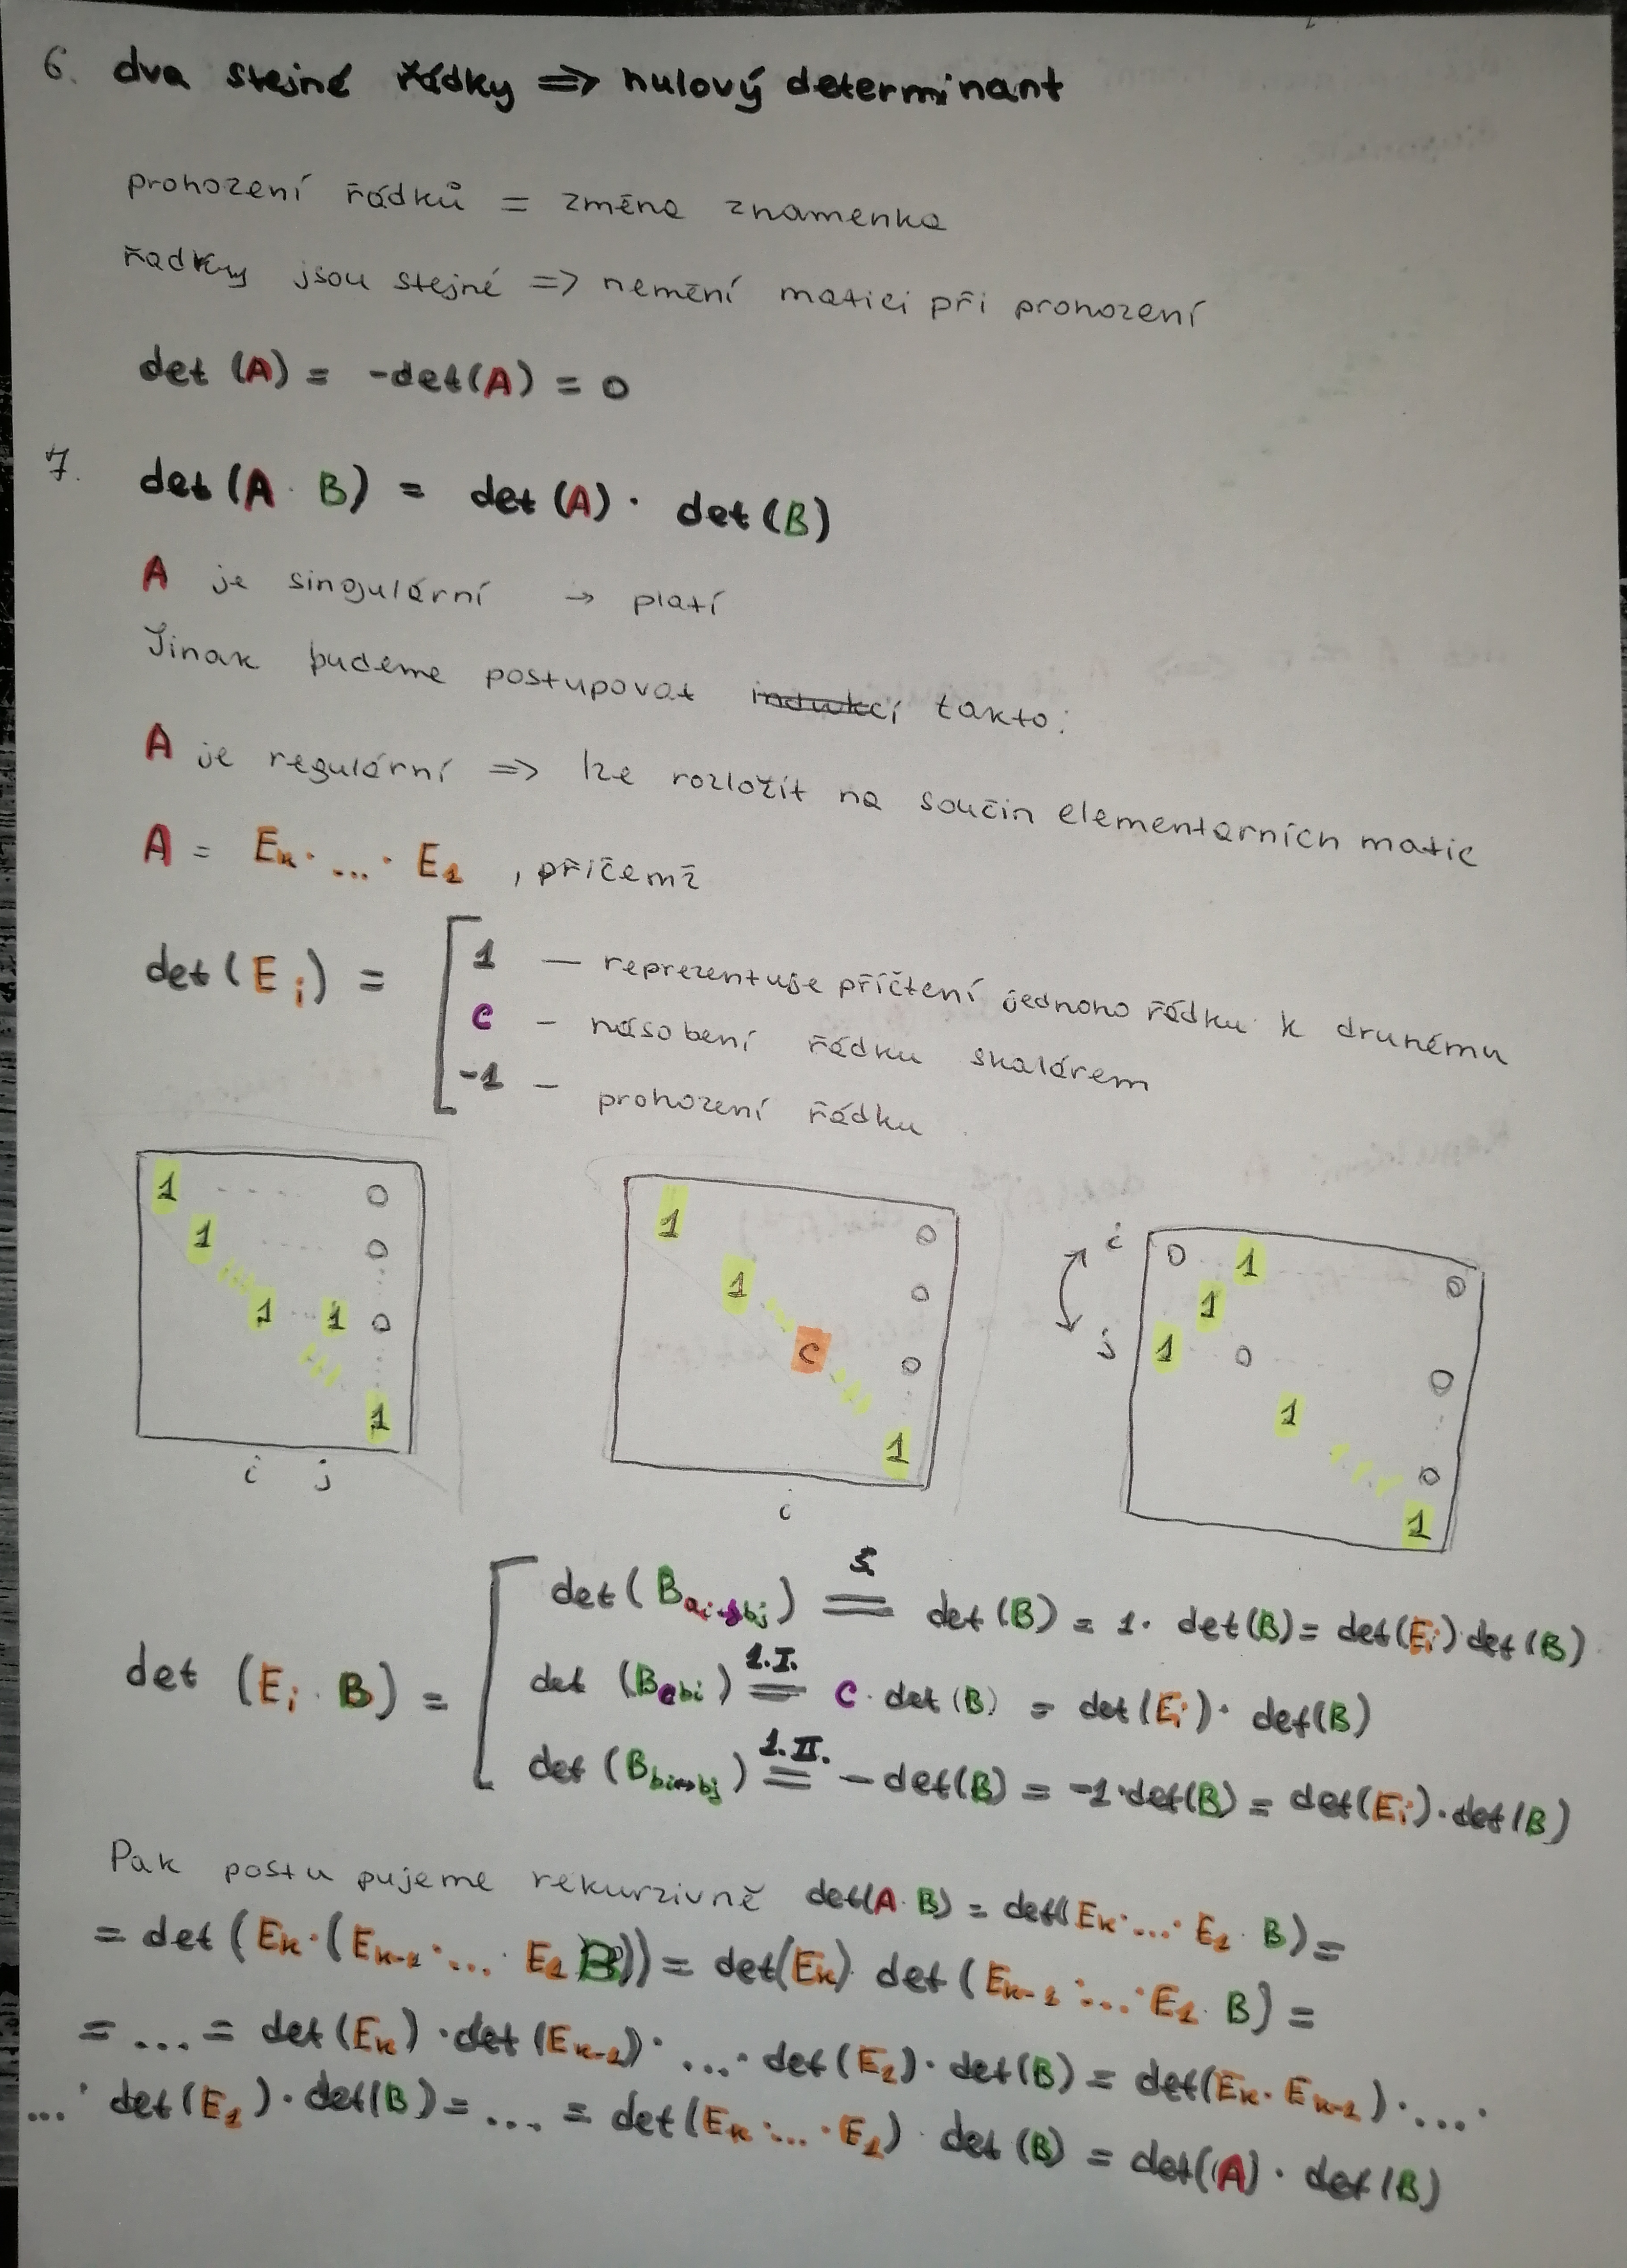 6. dva stejné řádky => nulový determinant
prohození řádků = změna znamenka
řadky jsou stejné => nemění matici při prohození
det (A) = -det(A) = 0
7. det (A · B) = det (A) · det (B)
A je singulární → platí
Jinak budeme postupovat indukcí takto:
A je regulární => lze rozložit na součin elementárních matic
A = Ek · ... · E1 , přičemž
det (Ei) =
1 — reprezentuje přičtení jednoho řádku k druhému
c – násobení řádku skalárem
-1 – prohození řádku
1 - - - - 0
1 ---- 0
1 ... 1 0
1
i j
1 0
1 0
c 0
1
i
i 0 1 0
1
j 1 0 0
1 0
1
det (Ei · B) =
det (B) = 1 · det (B) = det (Ei) det (B)
1.I.
= c · det (B) = det (Ei) · det (B)
1.II.
det (Bbi↔bj) = – det (B) = -1 · det (B) = det (Ei) · det (B)
Pak postupujeme rekurzivně det(A · B) = det(Ek · ... · E1 · B) =
= det (Ek · (Ek-1 · ... · E1 B)) = det(Ek) det (Ek-1 · ... · E1 · B) =
= ... = det (Ek) · det (Ek-1) · ... · det (E1) · det (B) = det(Ek · Ek-1) · ... ·
... · det (E1) · det (B) = ... = det (Ek · ... · E1) · det (B) = det(A) · det (B)